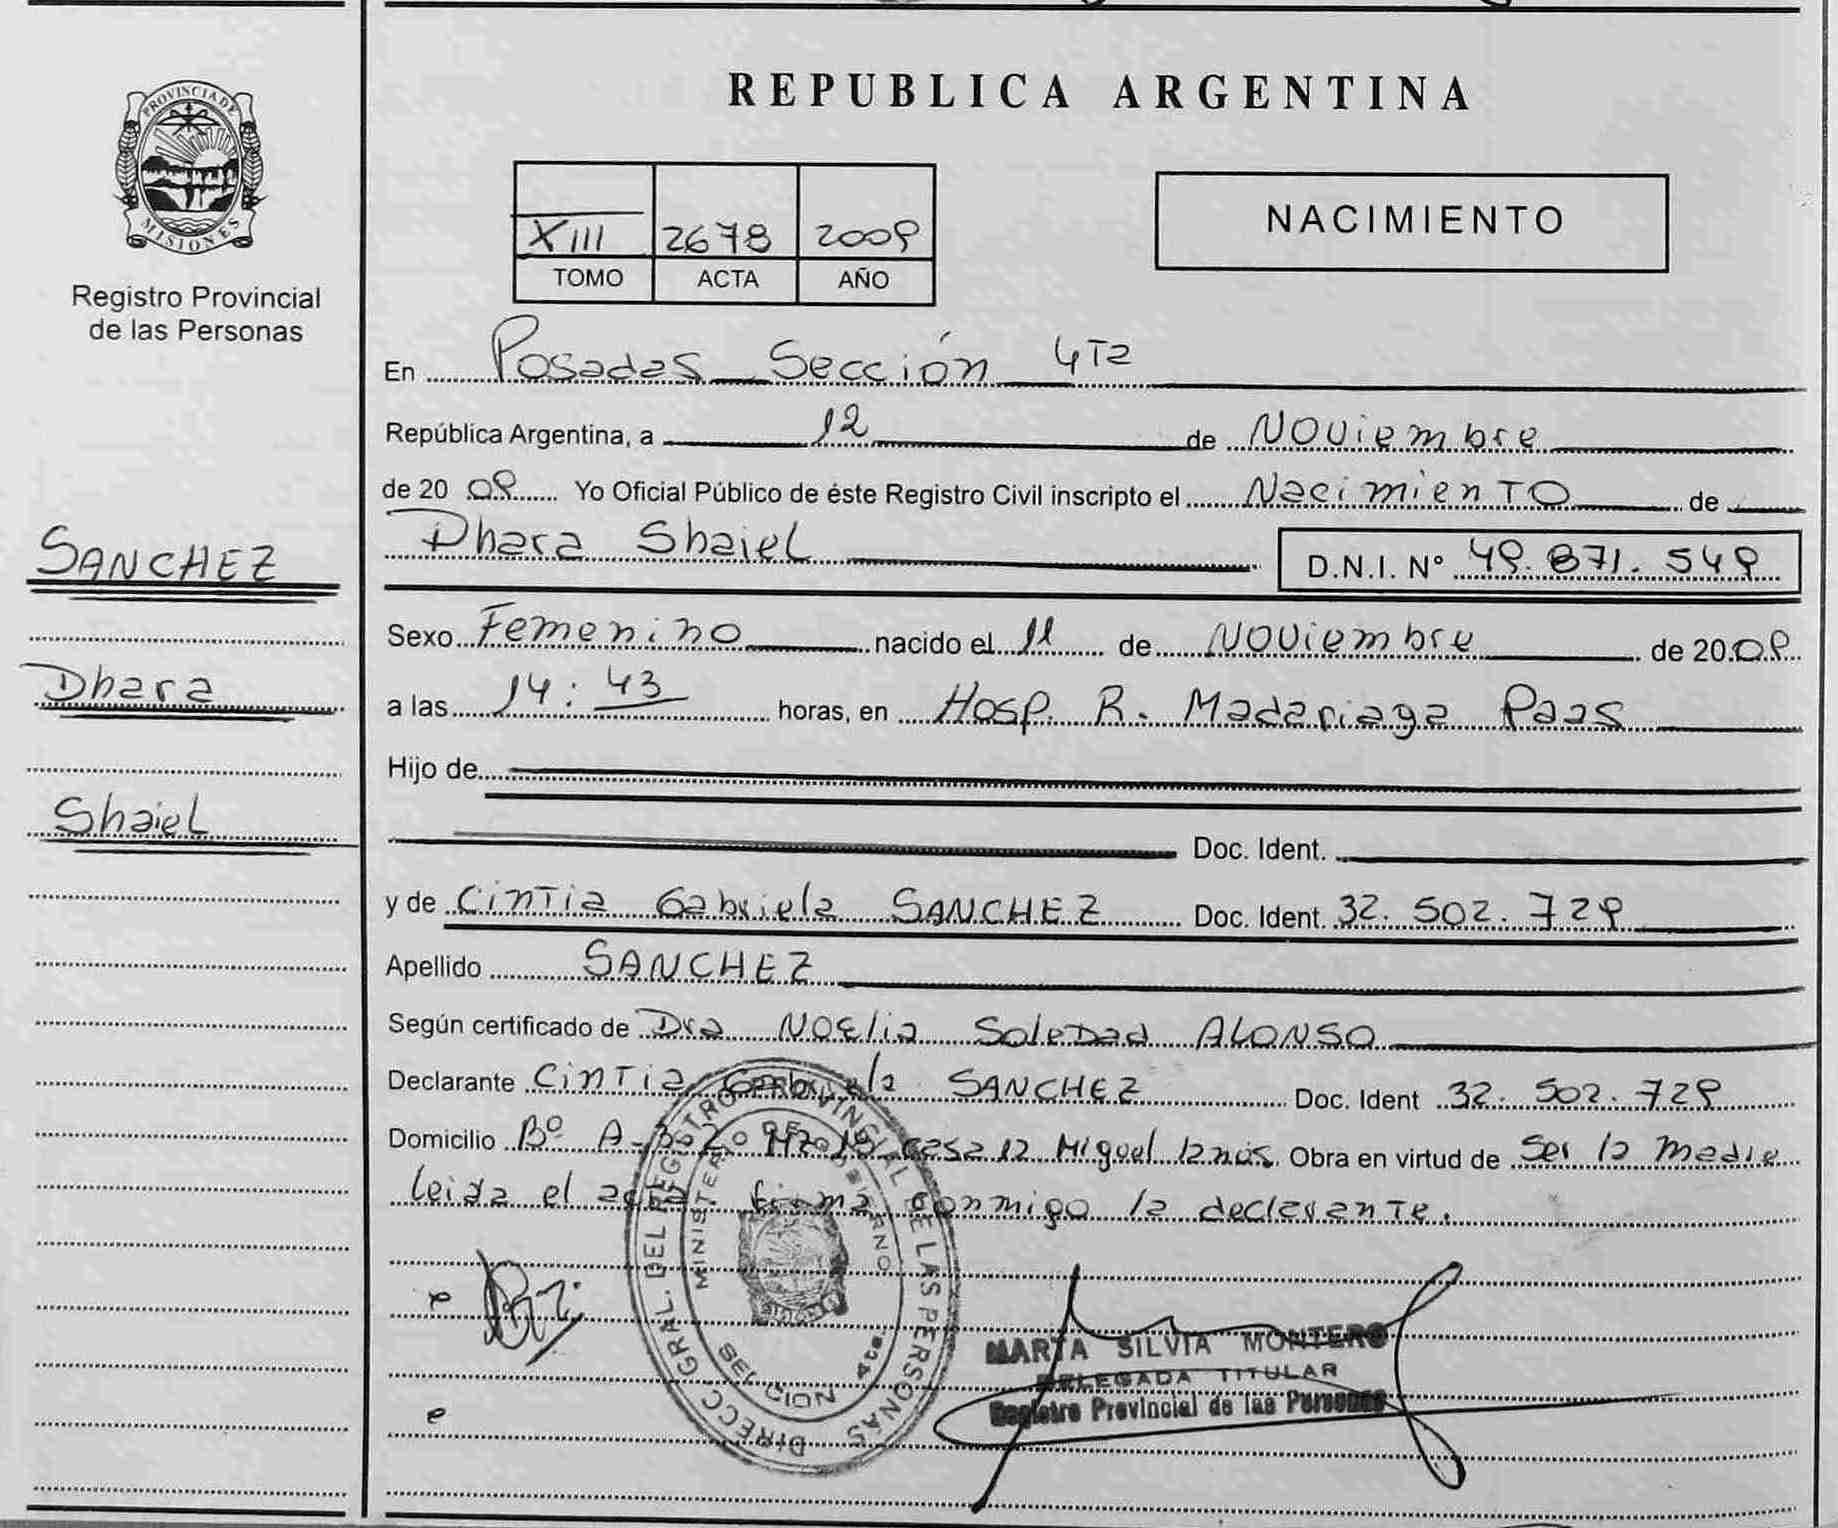 PROVINCIA DE
MISIONES
Registro Provincial
de las Personas
SANCHEZ
Dhara
Shaiel
REPUBLICA ARGENTINA
XIII 2678 2009
TOMO ACTA AÑO
NACIMIENTO
En Posadas Sección 4Ta
República Argentina, a 12 de Noviembre
de 2009 Yo Oficial Público de éste Registro Civil inscripto el Nacimiento de
Dhara Shaiel D.N.I. N° 49.871.549
Sexo Femenino nacido el 11 de Noviembre de 2009
a las 14:43 horas, en Hosp. R. Madariaga Pdas
Hijo de
Doc. Ident.
y de Cintia Gabriela SANCHEZ Doc. Ident. 32.502.729
Apellido SANCHEZ
Según certificado de Dra Noelia Soledad ALONSO
Declarante Cintia Gabriela SANCHEZ Doc. Ident 32.502.729
Domicilio Bº A-3-2 casa 12 Miguel Obra en virtud de Ser la madre
leida el acta firma conmigo la declarante.
DIRECC GRAL. DEL REGISTRO PROVINCIAL DE LAS PERSONAS
MINISTERIO DE GOBIERNO
SECCION 4ta
MARTA SILVIA MONTERO
DELEGADA TITULAR
Registro Provincial de las Personas